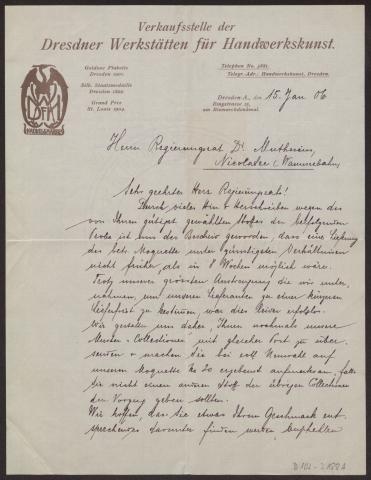 Verkaufsstelle der
Dresdner Werkstätten für Handwerkskunst.
Goldene Plakette
Dresden 1901.
Silb. Staatsmedaille
Dresden 1899.
Grand Prix
St. Louis 1904.
Telephon No. 5881.
Telegr.-Adr.: Handwerkskunst, Dresden.
Dresden-A., den 15. Jan 06
Ringstrasse 15,
am Bismarckdenkmal.
Herrn Regierungsrat Dr. Muthesius,
Nicolassee (Wannseebahn)
Sehr geehrter Herr Regierungsrat!
Durch vieles Hin & Herschreiben wegen des
von Ihnen gütigst gewählten Stoffes der beifolgenden
Probe ist uns der Bescheid geworden, dass eine Lieferung
des betr. Moquette unter günstigsten Verhältnissen
nicht früher, als in 8 Wochen möglich wäre.
Trotz unserer grössten Anstrengung die wir unter-
nahmen, um unseren Lieferanten zu einer kürzeren
Lieferfrist zu bestimmen war dies bisher erfolglos.
Wir gestatten uns daher, Ihnen nochmals unsere
Muster-Collectionen mit gleicher Post zu über-
senden & machen Sie bei evtl. Neuwahl auf
unseren Moquette No 30 ergebenst aufmerksam, falls
Sie nicht einem anderen Stoff der übrigen Collectionen
den Vorzug geben sollten.
Wir hoffen, dass Sie etwas Ihrem Geschmack ent-
sprechendes darunter finden werden, empfehlen